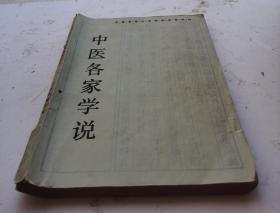 中医各家学说